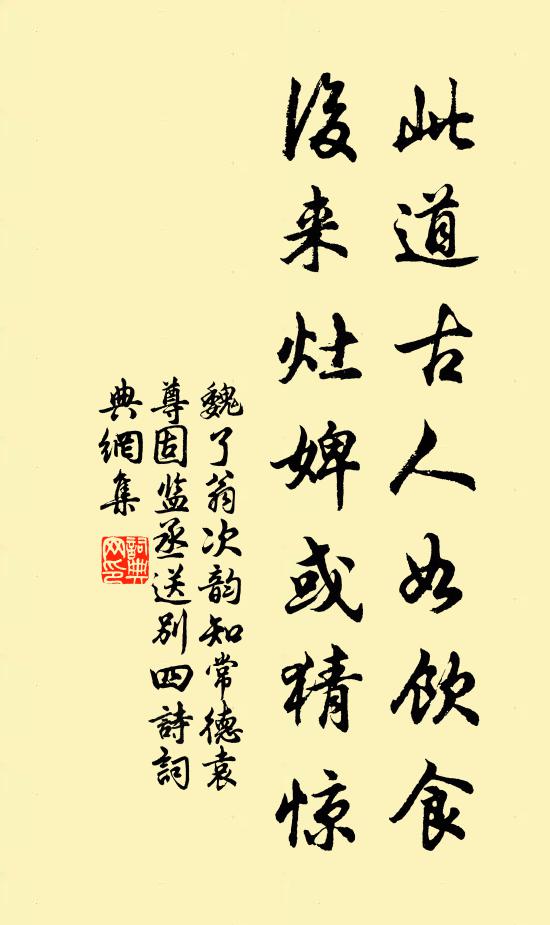 此道古人如饮食
後来灶婢或猜惊
魏了翁次韵知常德袁
尊固监丞送别四詩詞
典網集
詞典
网印